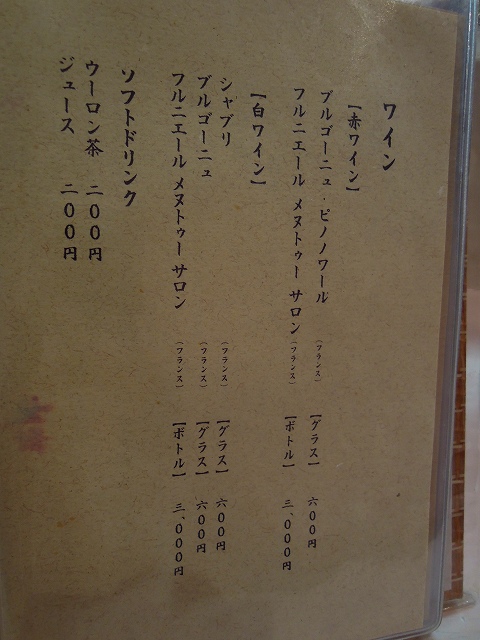 ワイン
【赤ワイン】
ブルゴーニュ・ピノノワール (フランス) 【グラス】 六00円
フルニエール メヌトゥー サロン (フランス) 【ボトル】 三、000円
【白ワイン】
シャブリ (フランス) 【グラス】 六00円
ブルゴーニュ (フランス) 【グラス】 六00円
フルニエール メヌトゥー サロン (フランス) 【ボトル】 三、000円
ソフトドリンク
ウーロン茶 二00円
ジュース 二00円